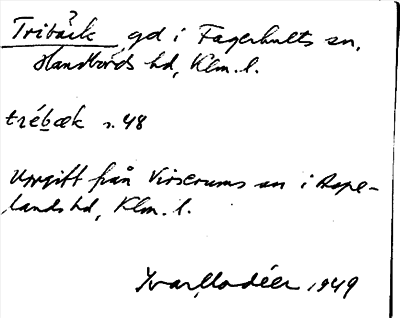 Tribäck, gd i Fagerhults sn,
Handbörds hd, Klm. l.
trébæk s. 48
Uppgift från Virserums sn i Aspe-
lands hd, Klm. l.
Ivar Modéer 1949